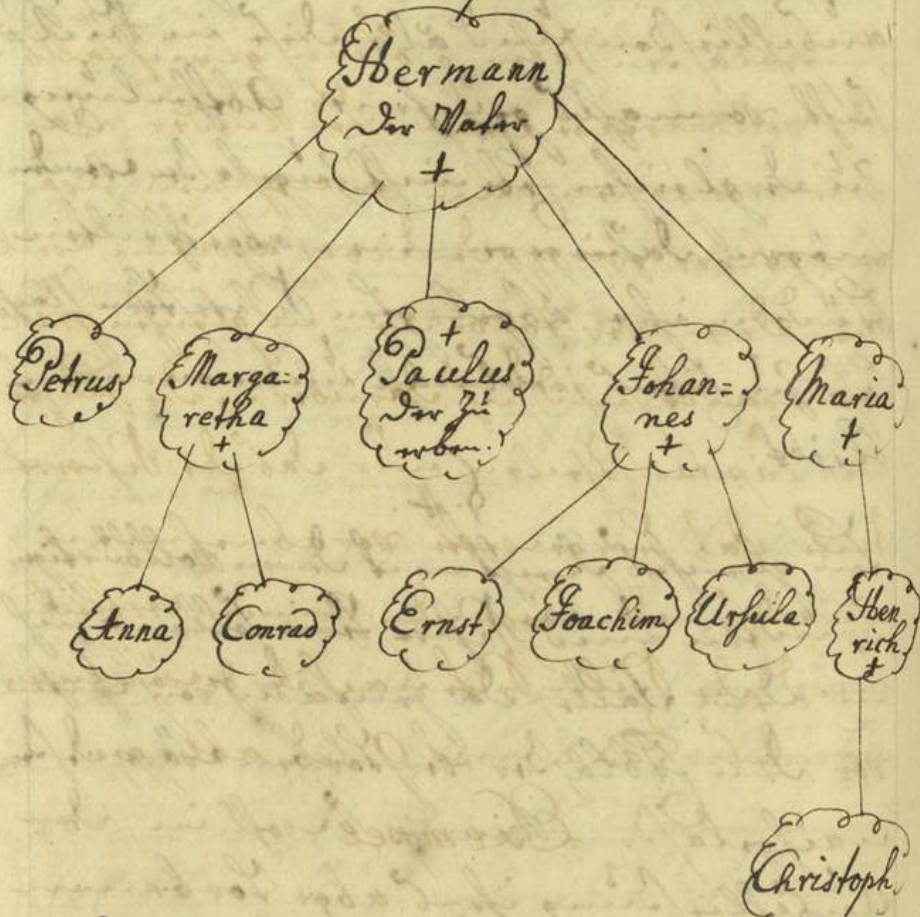 Hermann
Der Vater
+
Petrus
Marga=
retha
+
+
Paulus
Der Zu
erben.
Johan=
nes
+
Maria
+
Anna
Conrad
Ernst
Joachim
Urſula
Hen
rich
+
Christoph